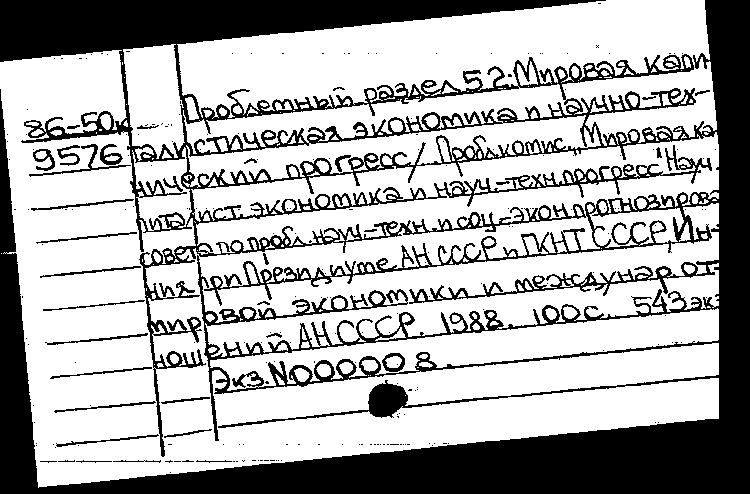 Проблемный раздел 5.2: Мировая капи-
86-50к
9576
талистическая экономика и научно-тех-
нический прогресс / Пробл.комис. „Мировая ка-
питалист. экономика и науч.-техн.прогресс" Науч.
совета по пробл.науч.-техн. и соц.-экон.прогнозирова
ния при Президиуме АН СССР и ГКНТ СССР, Ин-
мировой экономики и междунар. от-
ношений АН СССР. 1988. 100с. 543 экз
Экз.N000008.